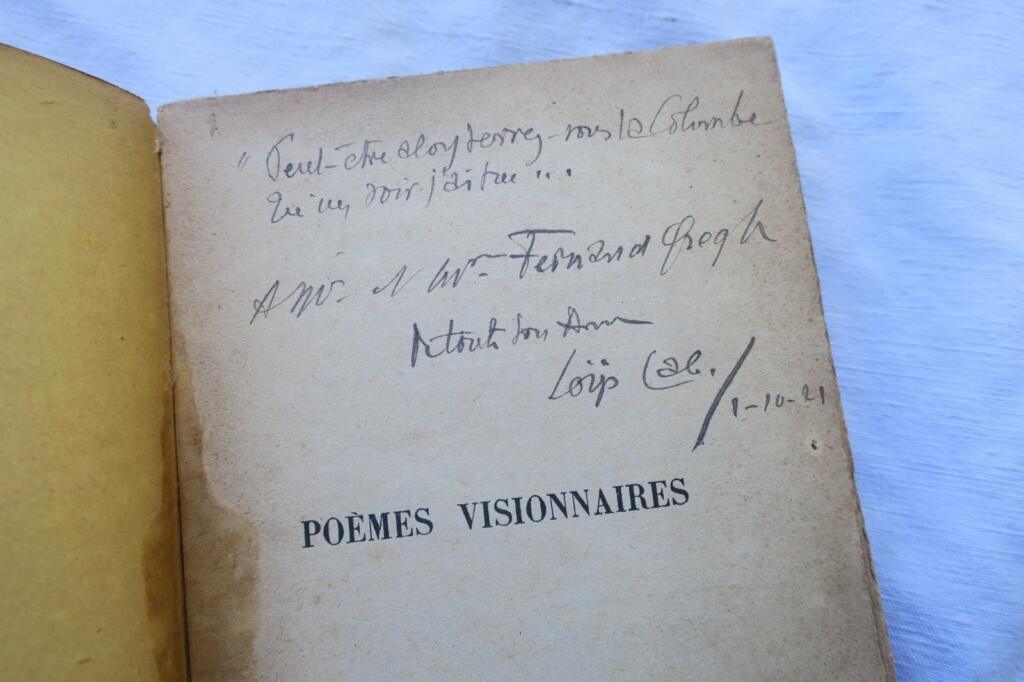 " Peut-être alors verrez-vous la Colombe
Qu'un soir j'ai tué...
A Mr. et Mme Fernand Gregh
De toute son Ame
Loÿs Lab.
1-10-21
POÈMES VISIONNAIRES